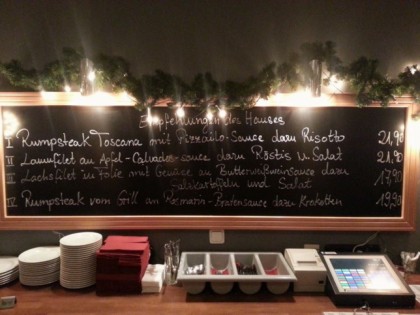 Empfehlungen des Hauses
I Rumpsteak Toscana mit Pizzaiolo-Sauce dazu Risotto 21,90
II Lammfilet an Apfel-Calvados-sauce dazu Röstis u Salat 21,90
III Lachsfilet in Folie mit Gemüse an Butterweißweinsauce dazu 17,90
Salzkartoffeln und Salat
IV Rumpsteak vom Grill an Rosmarin-Bratensauce dazu Kroketten 19,90